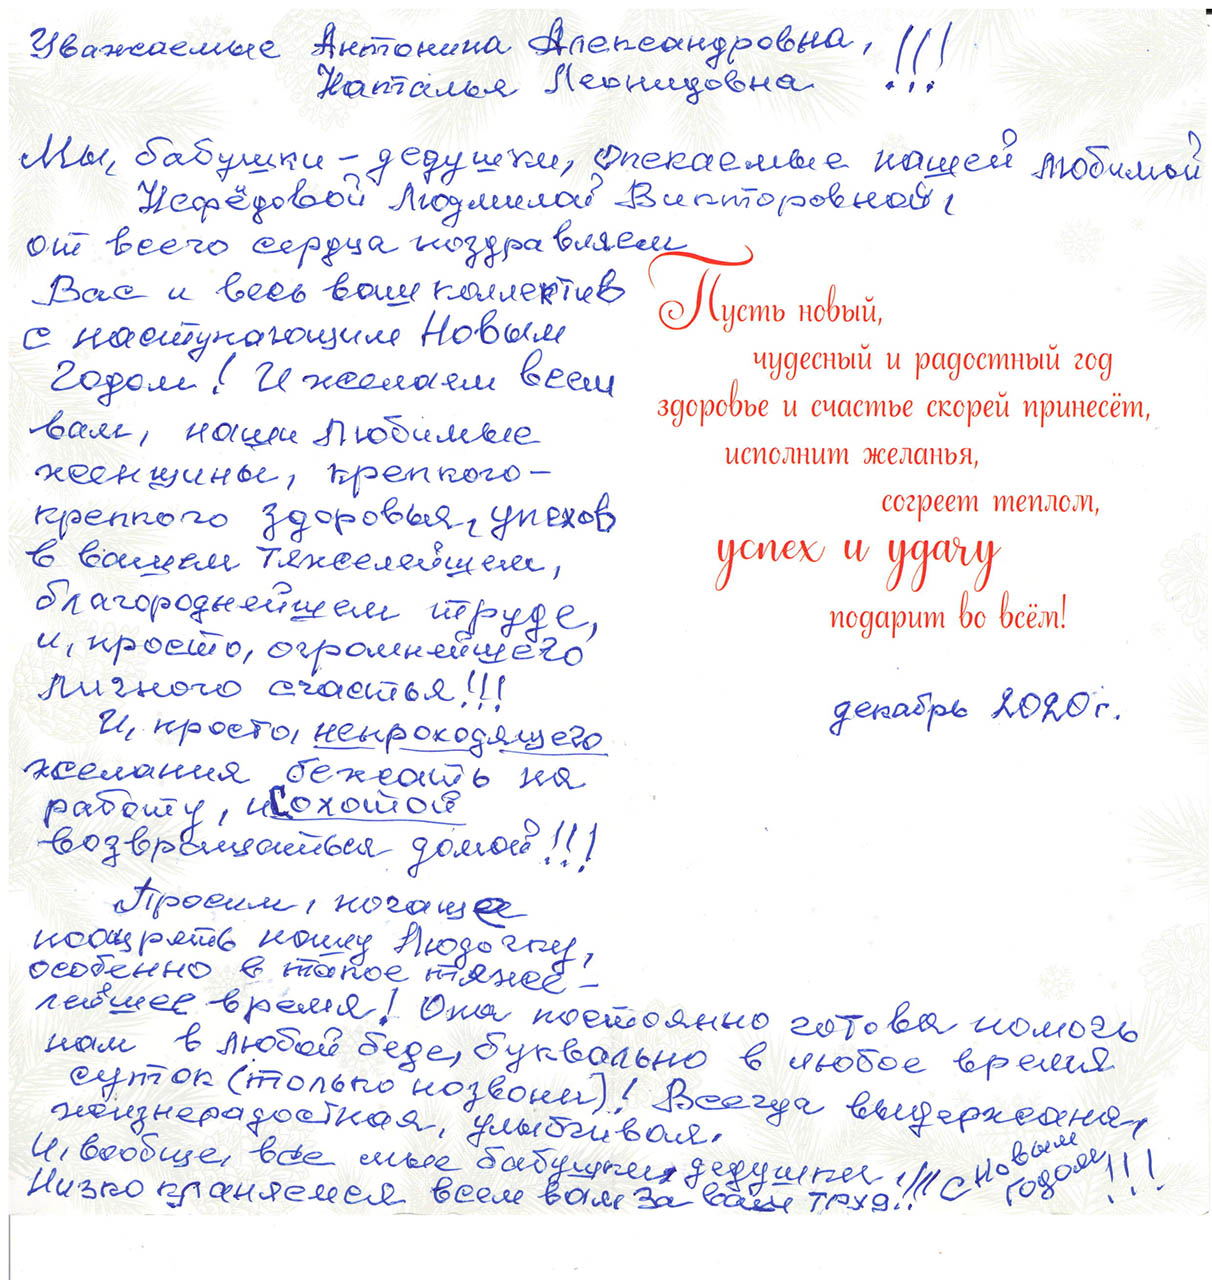 Уважаемые Антонина Александровна, !!!
Наталья Леонидовна
Мы, бабушки – дедушки, опекаемые нашей любимой
Нефёдовой Людмилой Викторовной,
от всего сердца поздравляем
Вас и весь ваш коллектив
с наступающим Новым
Годом! И желаем всем
вам, наши любимые
женщины, крепкого-
крепкого здоровья, успехов
в вашем тяжелейшем,
благороднейшем труде,
и, просто, огромнейшего
личного счастья!!!
И, просто, непроходящего
желания бежать на
работу, и с охотой
возвращаться домой!!!
Просим, почаще
поощрять нашу Людочку,
особенно в такое тяже-
лейшее время! Она постоянно готова помочь
нам в любой беде, буквально в любое время
суток (только позвони)! Всегда выдержана,
жизнерадостная, улыбчивая.
И, вообще, все мы бабушки, дедушки, !!! С Новым
годом !!!
Низко кланяемся всем вам за ваш труд!!!
Пусть новый,
чудесный и радостный год
здоровье и счастье скорей принесёт,
исполнит желанья,
согреет теплом,
успех и удачу
подарит во всём!
декабрь 2020г.